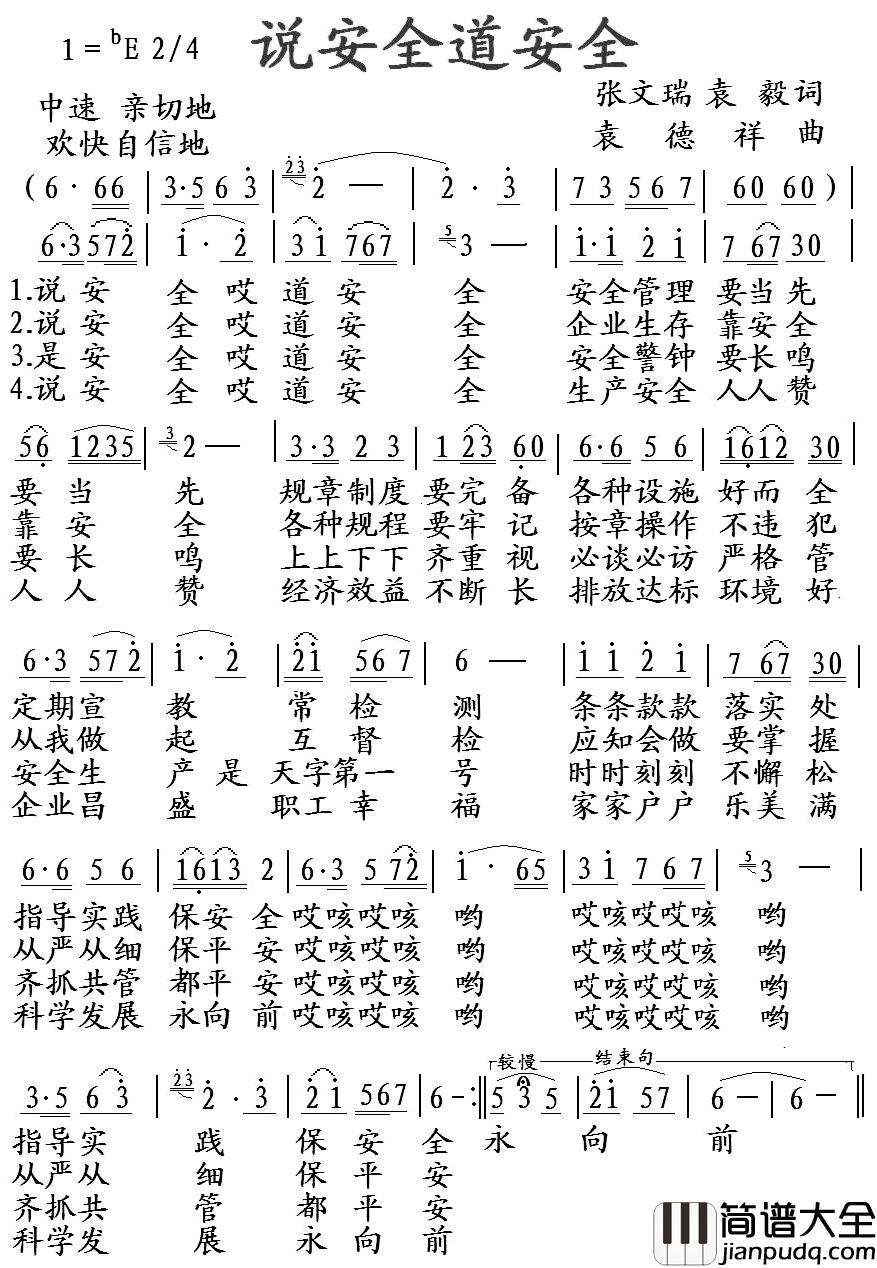 说安全道安全
1=ᵇE 2/4
中速 亲切地
欢快自信地
张文瑞 袁 毅词
袁 德 祥 曲
(6· 66 | 3·5 6 3 | 23 2 — | 2· 3 | 7 3 567 | 60 60) |
6·3 572 | 1· 2 | 3 1 767 | 5 3 — | 1·1 2 1 | 7 67 30 |
1.说 安 全 哎 道 安 全 安全管理 要当先
2.说 安 全 哎 道 安 全 企业生存 靠安全
3.是 安 全 哎 道 安 全 安全警钟 要长鸣
4.说 安 全 哎 道 安 全 生产安全 人人赞
56 1235 | 3 2 — | 3·3 2 3 | 1 23 60 | 6·6 5 6 | 1612 30 |
要 当 先 规章制度 要完 备 各种设施 好而 全
靠 安 全 各种规程 要牢 记 按章操作 不违 犯
要 长 鸣 上上下下 齐重 视 必谈必访 严格 管
人 人 赞 经济效益 不断 长 排放达标 环境 好
6·3 572 | 1· 2 | 21 567 | 6 — | 1 1 2 1 | 7 67 30 |
定期宣 教 常 检 测 条条款款 落实 处
从我做 起 互 督 检 应知会做 要掌 握
安全生 产 是 天字第一 号 时时刻刻 不懈 松
企业昌 盛 职工 幸 福 家家户户 乐美 满
6·6 5 6 | 1613 2 | 6·3 5 72 | 1· 65 | 3 1 7 67 | 5 3 — |
指导实践 保安 全 哎咳哎咳 哟 哎咳哎哎咳 哟
从严从细 保平 安 哎咳哎咳 哟 哎咳哎哎咳 哟
齐抓共管 都平 安 哎咳哎咳 哟 哎咳哎哎咳 哟
科学发展 永向 前 哎咳哎咳 哟 哎咳哎哎咳 哟
较慢 结束句
3·5 6 3 | 23 2· 3 | 21 567 | 6 - :‖ 5 3 5 | 21 57 | 6 - 6 - ‖
指导实 践 保 安 全 永 向 前
从严从 细 保 平 安
齐抓共 管 都 平 安
科学发 展 永 向 前
简谱大全
jianpudq.com